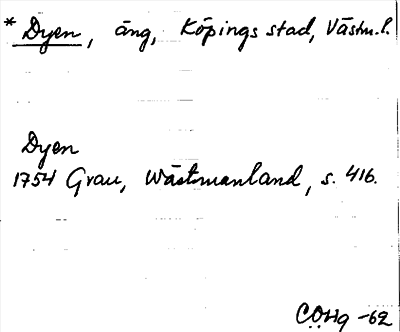 * Dyen, äng, Köpings stad, Västm.l.
Dyen
1754 Grau, Wästmanland, s. 416.
CÖHg -62